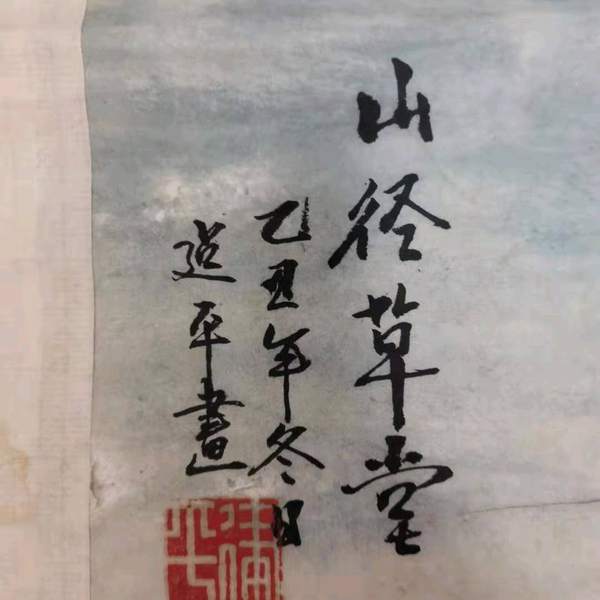 山径草堂
乙丑年冬日
平畫